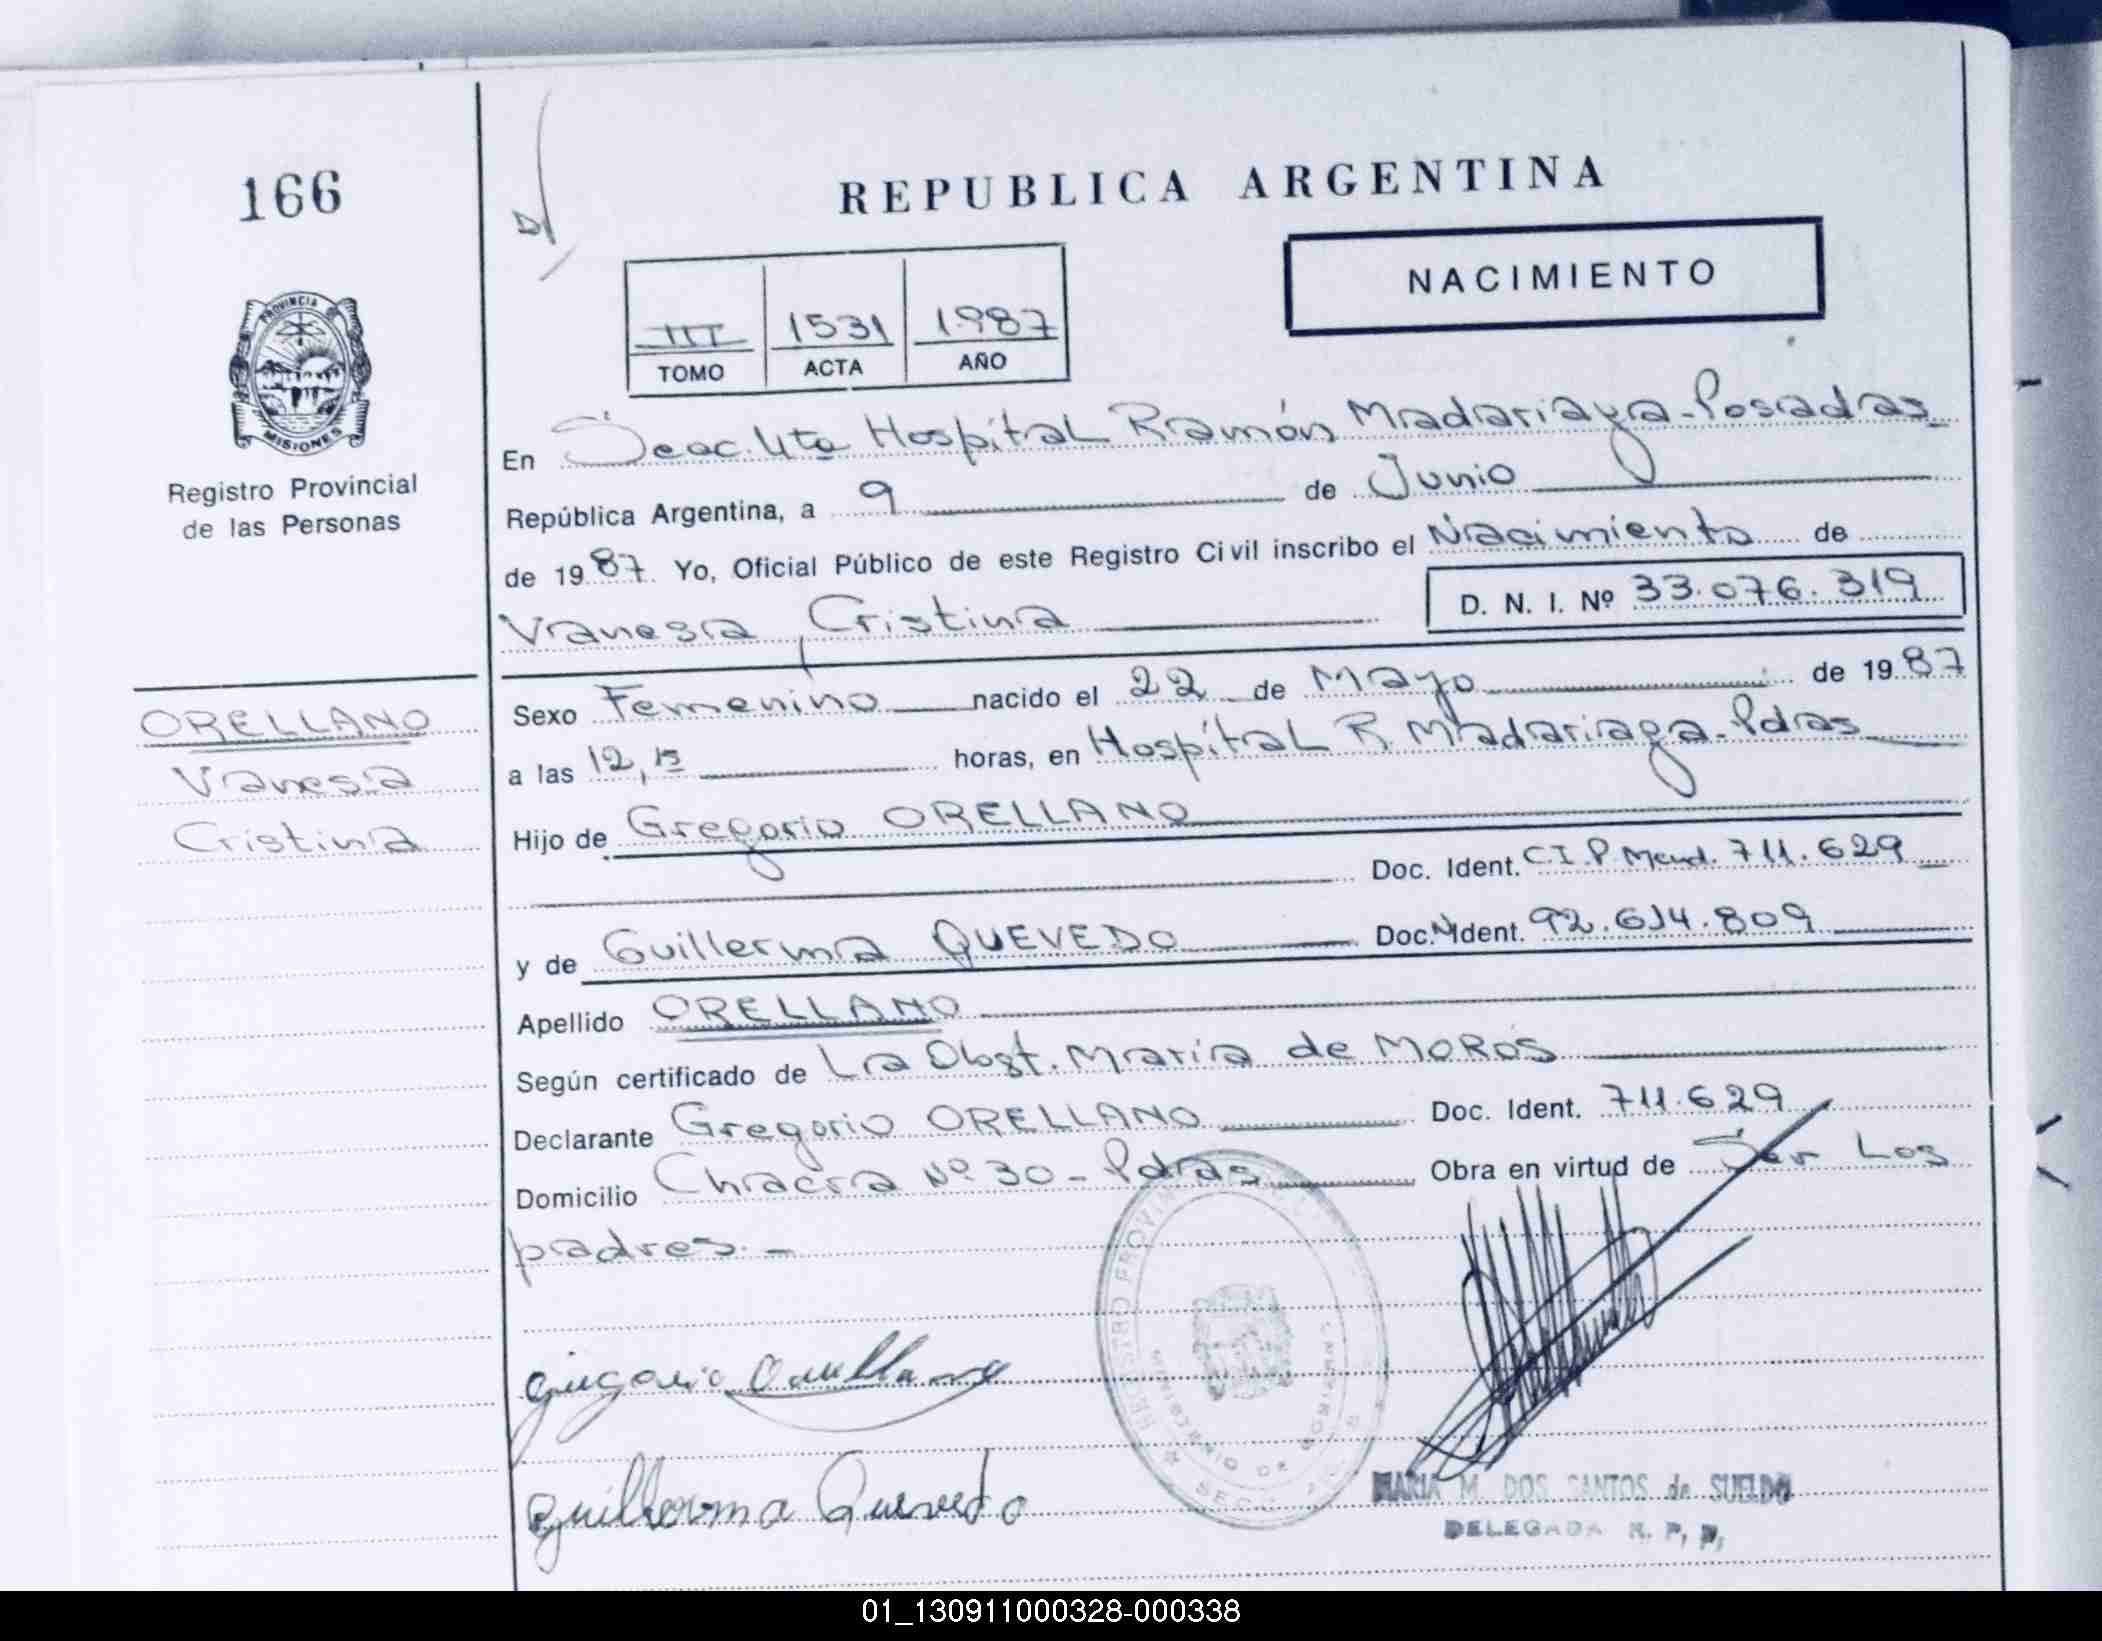 166
REPUBLICA ARGENTINA
NACIMIENTO
III 1531 1987
TOMO ACTA AÑO
PROVINCIA DE
MISIONES
Registro Provincial
de las Personas
En Hospital Ramón Madariaga-Posadas
República Argentina, a 9 de Junio
de 1987. Yo, Oficial Público de este Registro Civil inscribo el Nacimiento de
Vanesa, Cristina
D. N. I. Nº 33.076.319
ORELLANO
Vanesa
Cristina
Sexo Femenino nacido el 22 de Mayo de 1987
a las 12,15 horas, en Hospital R. Madariaga-Pdras
Hijo de Gregorio ORELLANO
Doc. Ident. C.I.P. Mend. 711.629
y de Guillerma QUEVEDO Doc. Ident. 92.614.809
Apellido ORELLANO
Según certificado de La Obst. María de MOROS
Declarante Gregorio ORELLANO Doc. Ident. 711.629
Domicilio Chacra Nº 30 - Pdras Obra en virtud de Ser Los
padres.-
gregorio Orellano
guillerma Quevedo
REGISTRO PROVIN
MINISTERIO DE GOBIERNO
MARIA M. DOS SANTOS de SUELDO
DELEGADA R. P. P.
01_130911000328-000338